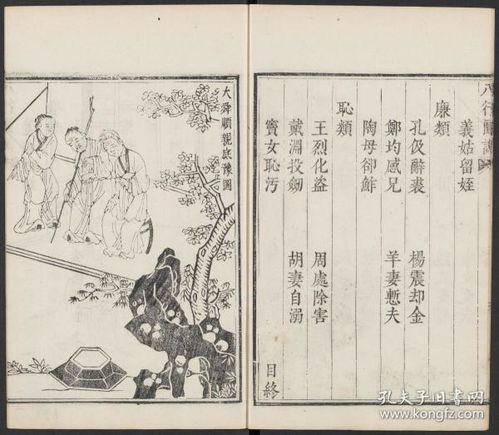 八行圖說
義姑留姪
廉類
孔伋辭裘 楊震却金
鄭均感兄 羊妻慙夫
陶母卻鮓
恥類
王烈化盜 周處除害
戴淵投劒 胡妻自溺
竇女恥污
目終
大舜順親底豫圖
孔夫子旧书网
www.kongfz.com